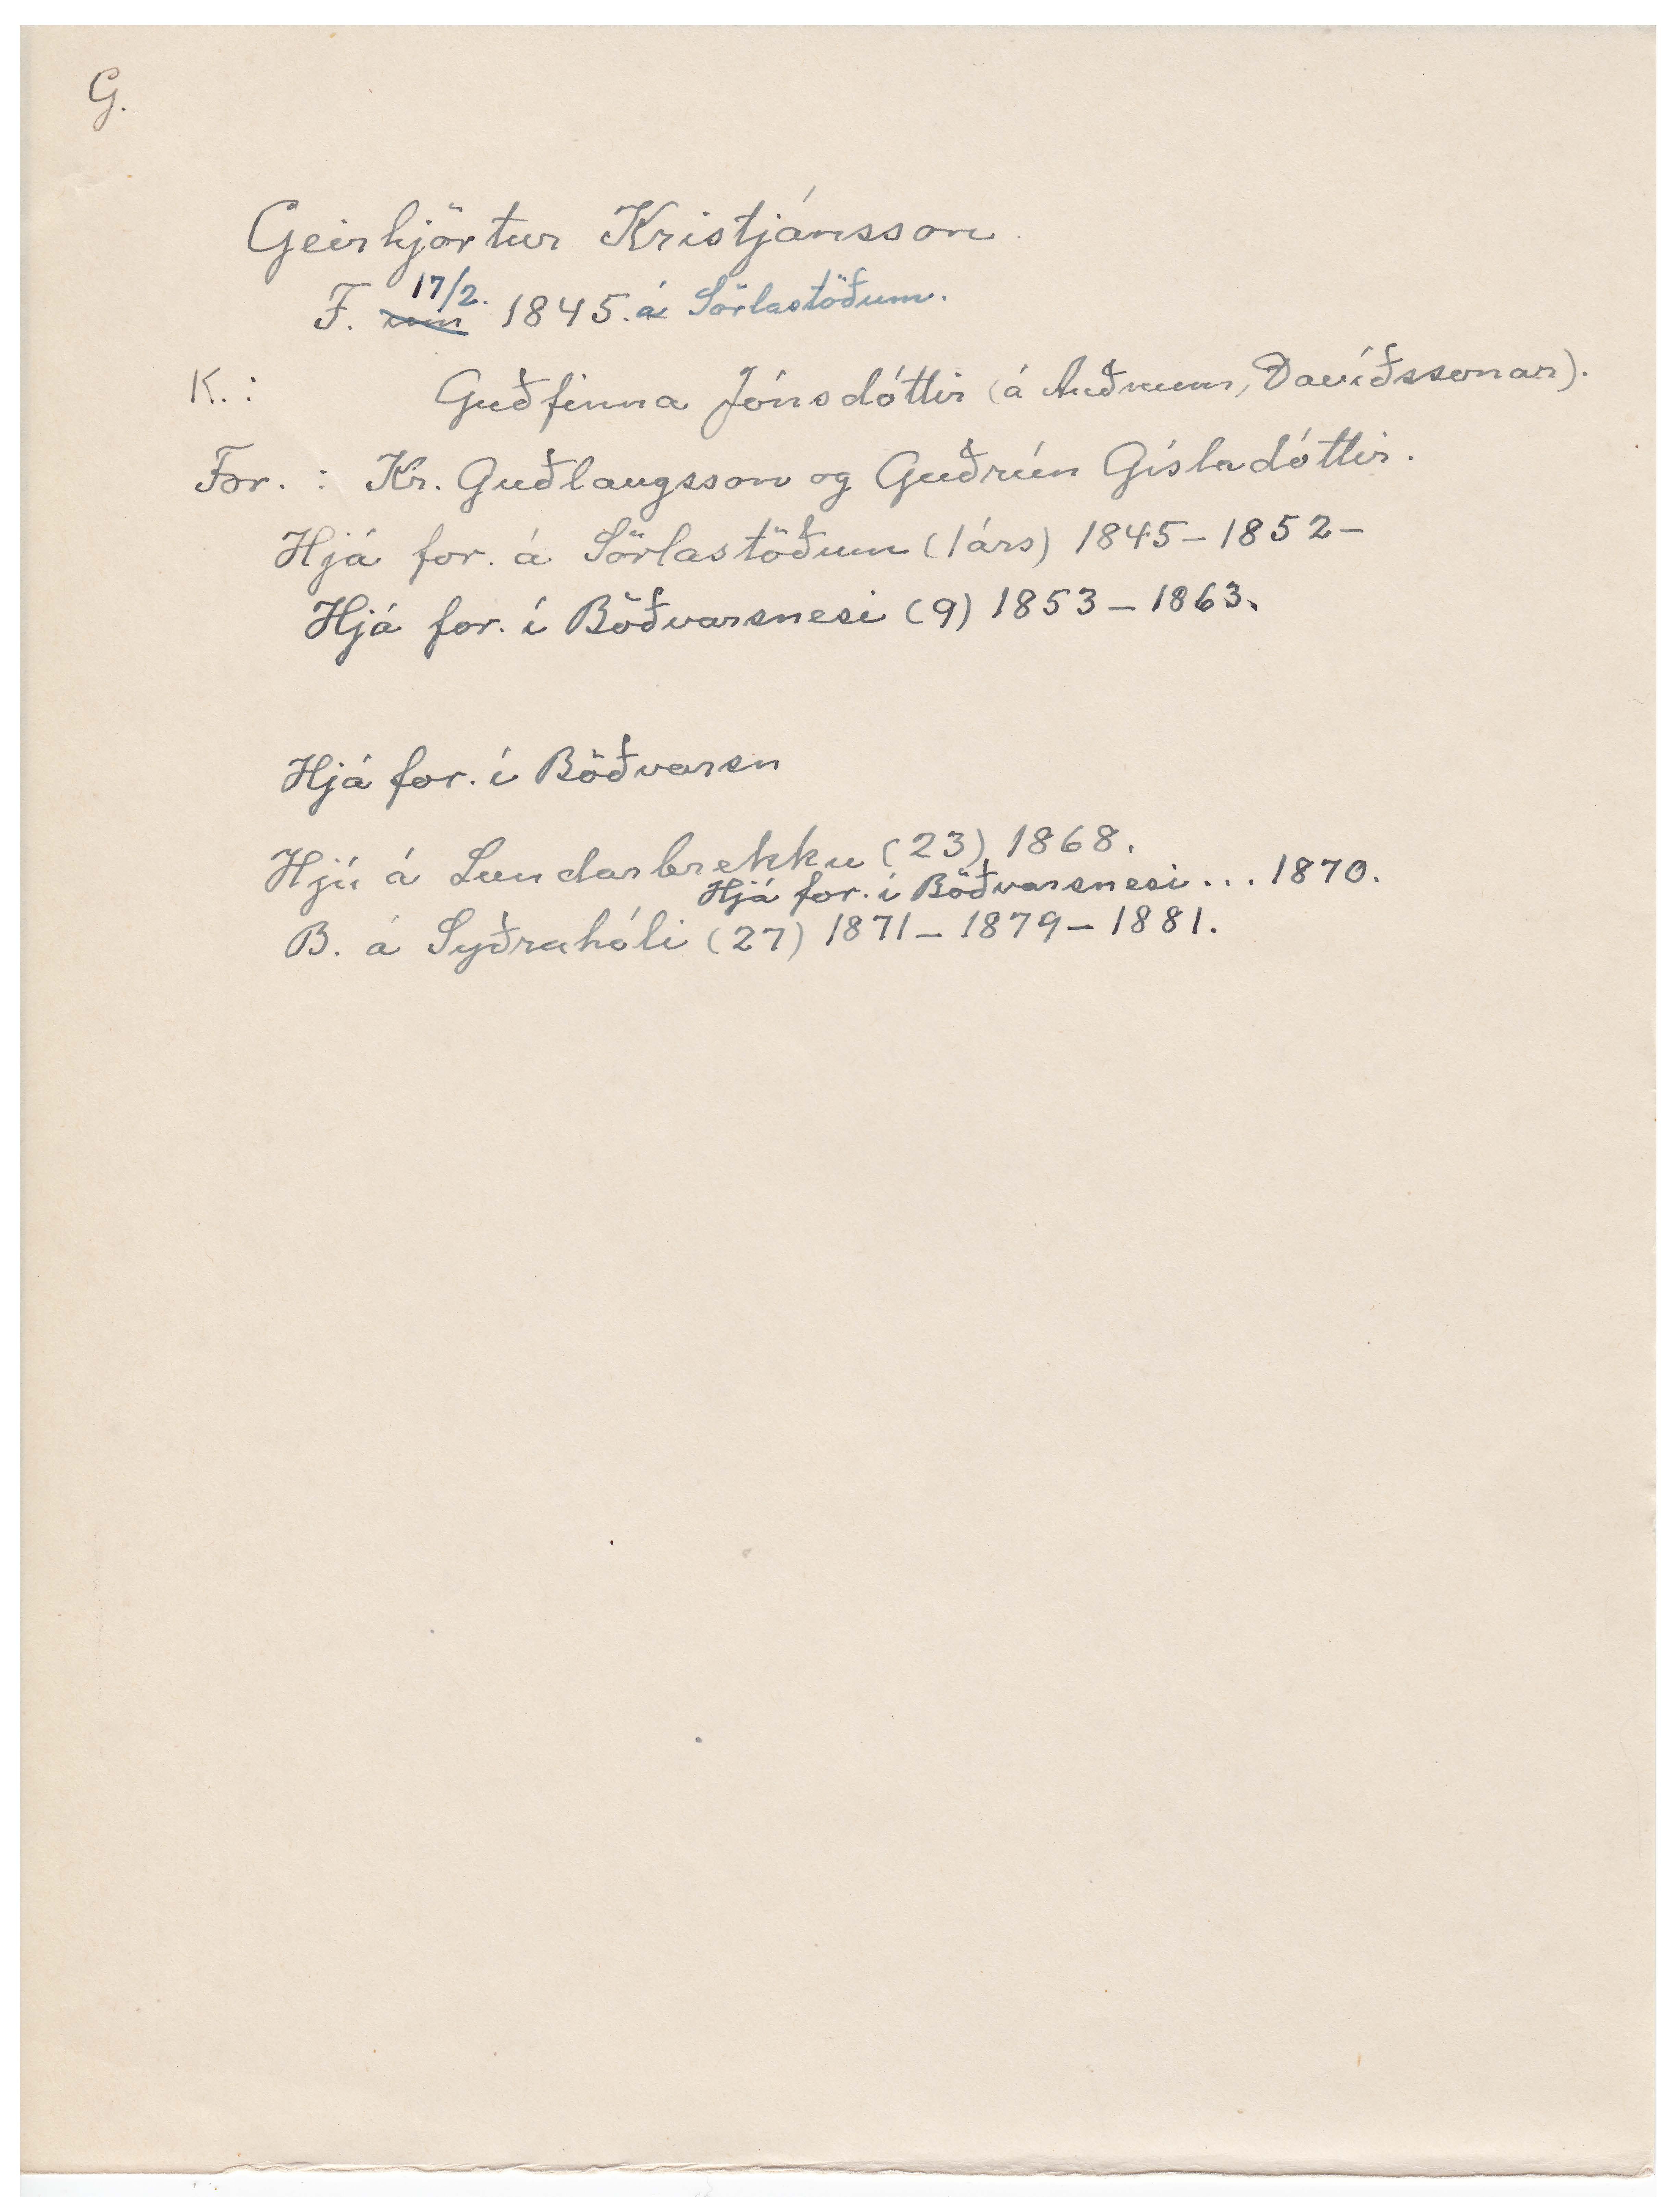 G.
Geirhjörtur Kristjánsson.
F. um 17/2. 1845. á Sörlastöðum.
K.: Guðfinna Jónsdóttir (á Auðnum, Davíðssonar).
For. : Kr. Guðlaugsson og Guðrún Gísladóttir.
Hjá for. á Sörlastöðum (1árs) 1845–1852–
Hjá for. í Böðvarsnesi (9) 1853–1863.
Hjá for. í Böðvarsn
Hjú á Lundarbrekku (23) 1868.
Hjá for. í Böðvarsnesi... 1870.
B. á Syðrahóli (27) 1871–1879–1881.